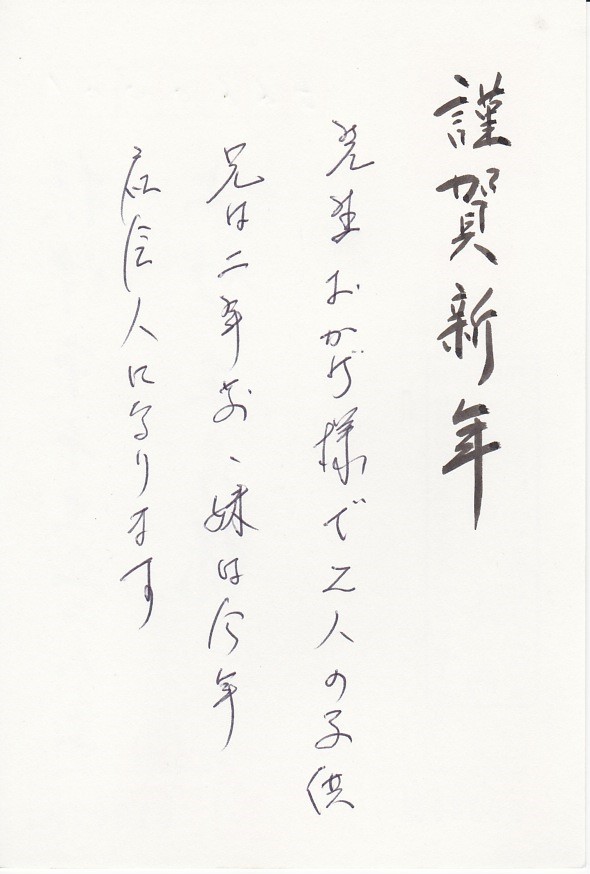 謹賀新年
先生おかげ様で二人の子供
兄は二年前、妹は今年
社会人になります